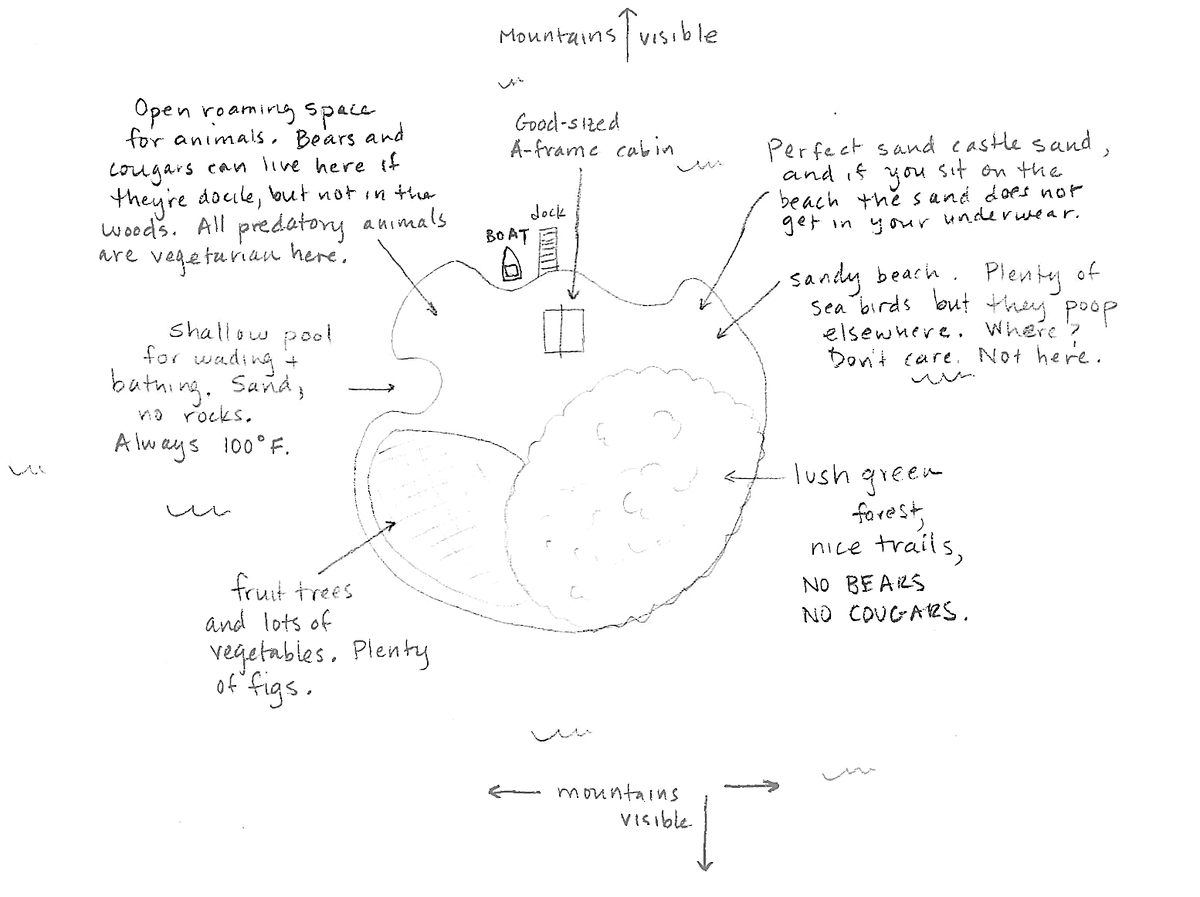 Mountains visible
Open roaming space
for animals. Bears and
cougars can live here if
they're docile, but not in the
woods. All predatory animals
are vegetarian here.
Good-sized
A-frame cabin
Perfect sand castle sand,
and if you sit on the
beach the sand does not
get in your underwear.
dock
BOAT
sandy beach. Plenty of
sea birds but they poop
elsewhere. Where?
Don't care. Not here.
Shallow pool
for wading +
bathing. Sand,
no rocks.
Always 100°F.
lush green
forest,
nice trails,
NO BEARS
NO COUGARS.
fruit trees
and lots of
vegetables. Plenty
of figs.
mountains
visible